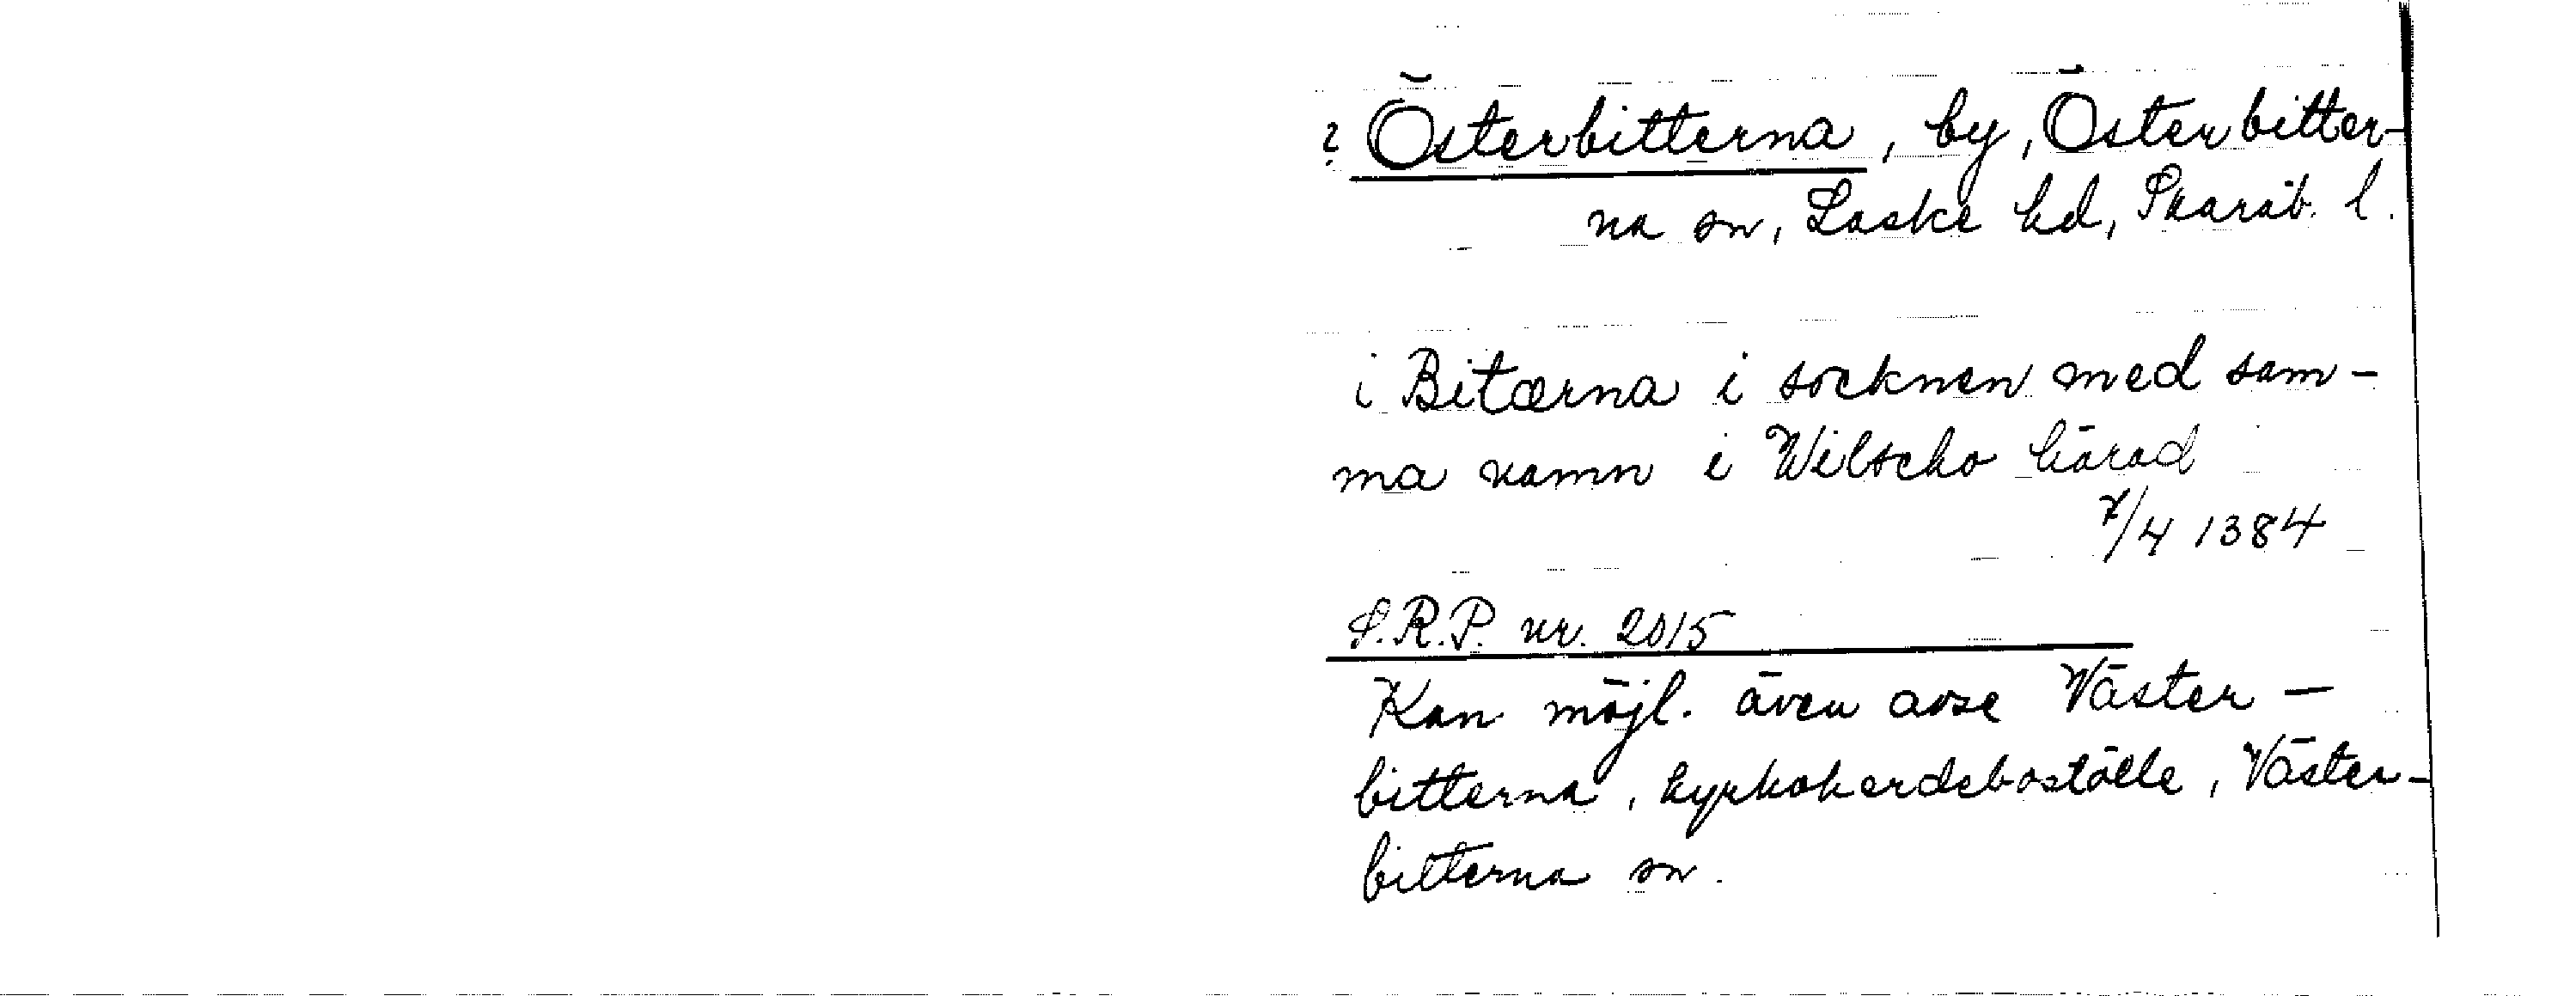 ? Österbitterna, by, Österbitter-
na sn, Laske hd, Skarab. l.
i Bitærna i socknen med sam-
ma namn i Wilscho härad
7/4 1384
S.R.P. nr. 2015
Kan möjl. även avse Väster-
bitterna, kyrkoherdeboställe, Väster-
bitterna sn.